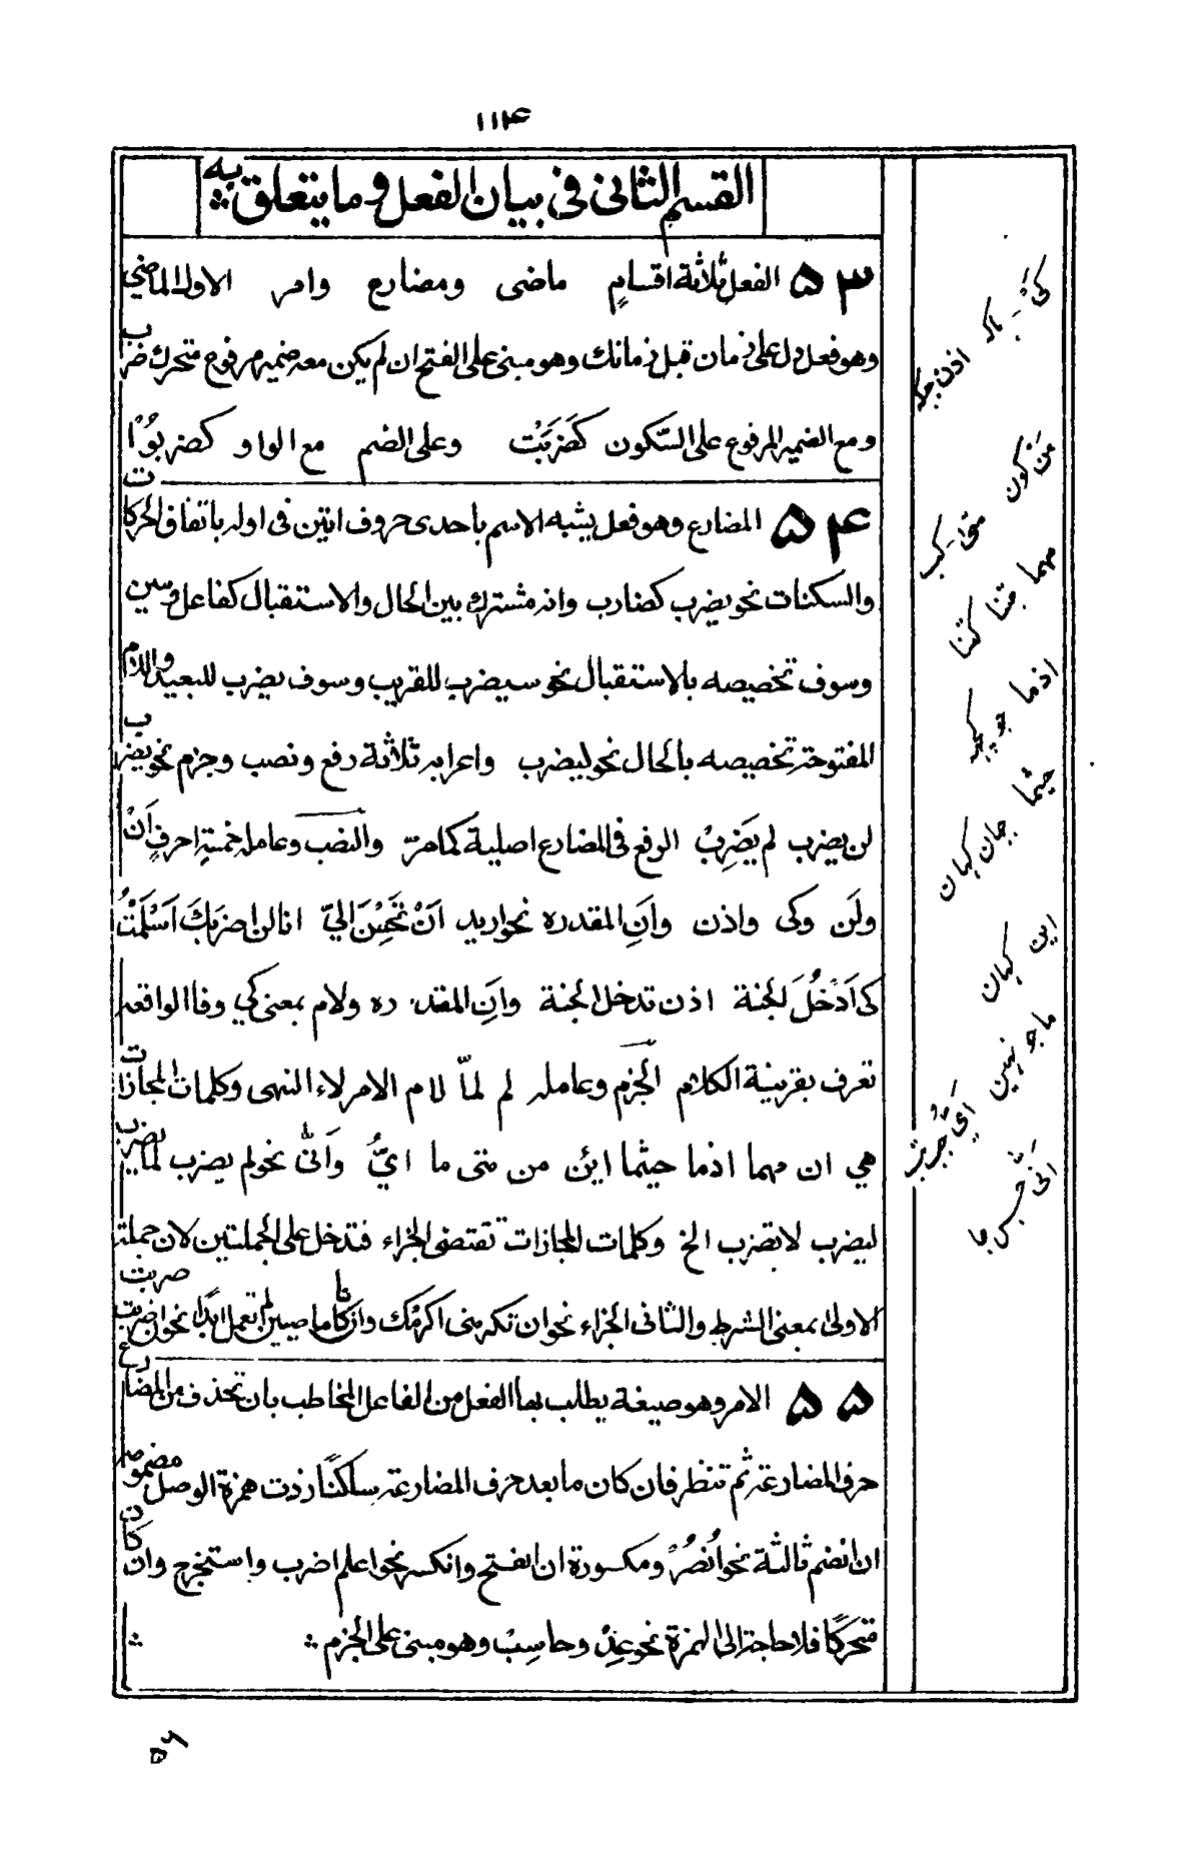 ۱۱۴
القسم الثانی فی بیان الفعل وما یتعلق به
۵۳ الفعل ثلاثة اقسامٍ ماضی ومضارع وامر الاول الماضی
وهو فعل دل علی زمان قبل زمانك وهو مبنی علی الفتح ان لم یکن معه ضمیر مرفوع متحرك ضرب
ومع الضمیر المرفوع علی السّکون کضَرَبْتُ وعلی الضم مع الواو کضربُوْا
۵۴ المضارع وهو فعل یشبه الاسم باحدی حروف اتین فی اوله باتفاق الحرکات
والسکنات نحو یضرب کضارب وانه مشترك بین الحال والاستقبال کفاعل وسین
وسوف تخصیصه بالاستقبال نحو سیضرب للقریب وسوف یضرب للبعید واللام
المفتوحة تخصیصه بالحال نحو لیضرب واعرابه ثلاثة رفع ونصب وجزم نحو یضرب
لن یضرب لم یَضْرِبْ الرفع فی المضارع اصلیة کما مرّ والنصب وعامله خمسة احرفٍ اَنْ
ولَن وکی واذن واَنِ المقدره نحو ارید اَنْ تُحْسِنَ الیّ انا لن اضربَكَ اَسْلَمْتُ
کی اَدْخُلَ الجنة اذن تدخل الجنة واَنِ المقدره ولام بمعنی کی وفا الواقعه
تعرف بقرینة الکلام الجزم وعامله لم لمّا لام الامر لاء النهی وکلمات المجازات
هی ان مهما اذما حیثما این من متی ما ایُّ واَنّی نحو لم یضرب لما یضرب
لیضرب لا یضرب الخ وکلمات المجازات تقتضی الجزاء فتدخل علی الجملتین لان جملة
الاولی بمعنی الشرط والثانی الجزاء نحو ان تکرمنی اکرمك وان کانا ماضیین لم تعمل ابدًا نحو ان ضربت ضربت
۵۵ الامر وهو صیغة یطلب بها الفعل من الفاعل المخاطب بان تحذف من المضارع
حرف المضارعة ثم تنظر فان کان ما بعد حرف المضارعة ساکنًا زدت همزة الوصل مضمومة
ان انضم ثالثة نحو اُنصُرْ ومکسورة ان انفتح وانکسر نحو اعلم اضرب واستخرج وان کان
متحرکًا فلا حاجة الی الهمزة نحو عِدْ وحاسِبْ وهو مبنی علی الجزم
کَیْ - تاکہ اذن جبکہ
مَنْ کون متی - کب
مہما جتنا کتنا
اذما جب کبھی
حیثما جہاں کہاں
این کہاں
ما جو نہیں اَیُّ
اَنّٰی جس جا
۵۶